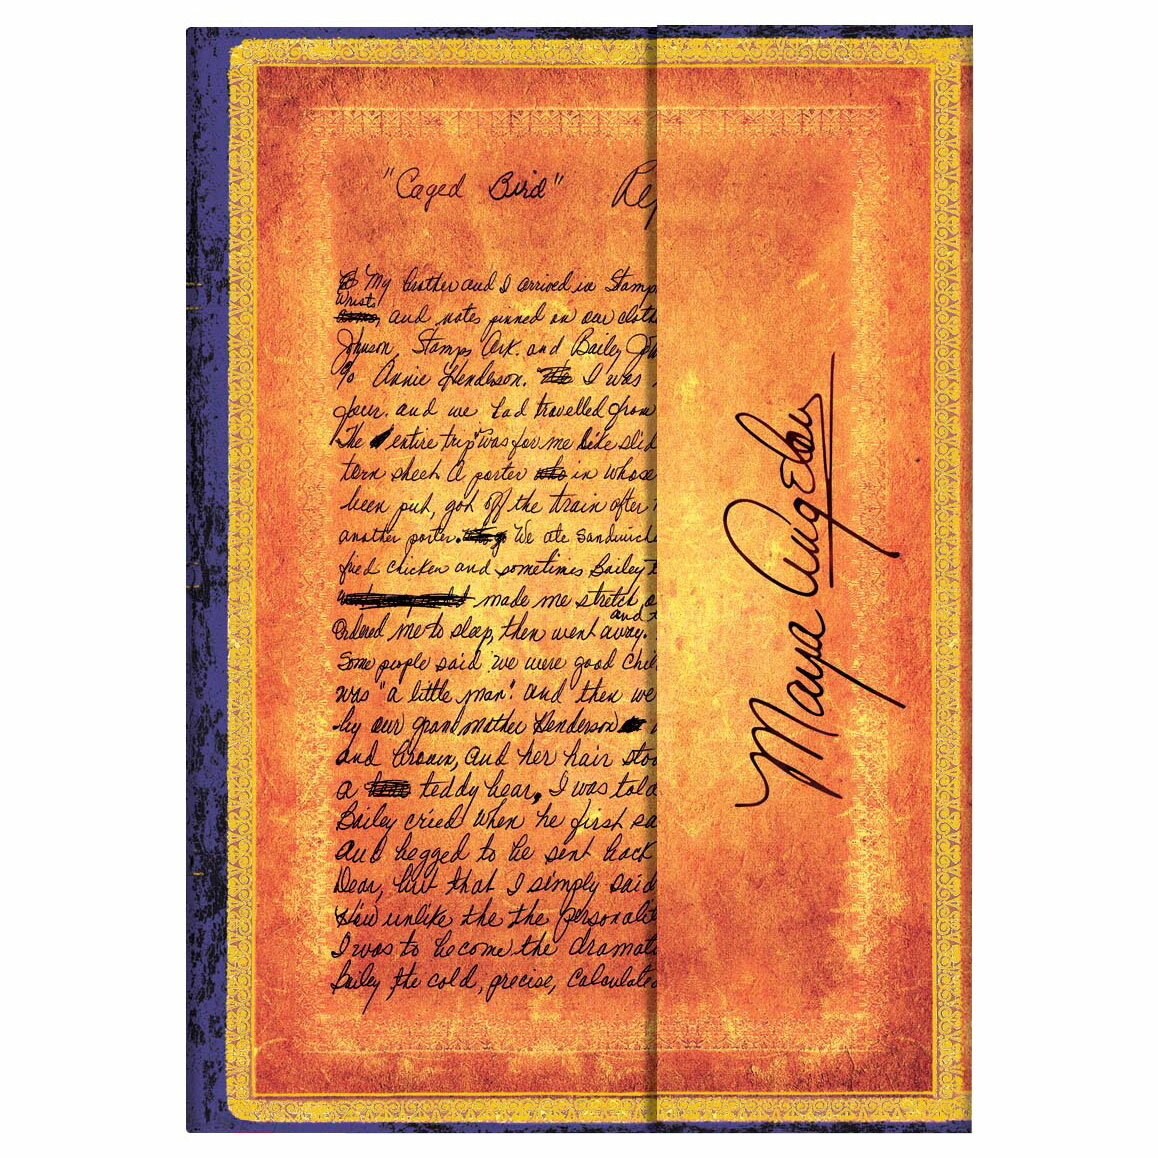 "Caged Bird" Rep
My brother and I arrived in Stamp
Wrists
arms, and notes pinned on our cloth
Johnson, Stamps Ark. and Bailey Joh
c/o Annie Henderson. I was
four. and we had travelled from
The entire trip was for me like slid
torn sheet. A porter who in whose
been put, got off the train after
another porter. We ate sandwiche
fried chicken and sometimes Bailey
made me stretch o
and
ordered me to sleep, then went away.
Some people said we were good chil
was "a little man". and then we
by our grandmother Henderson
and brown, and her hair stoo
a teddy bear, I was told
Bailey cried when he first sa
and begged to be sent back
Dear, but that I simply said
How unlike the the personalit
I was to become the dramat
Bailey, the cold, precise, calculate
Maya Angelou